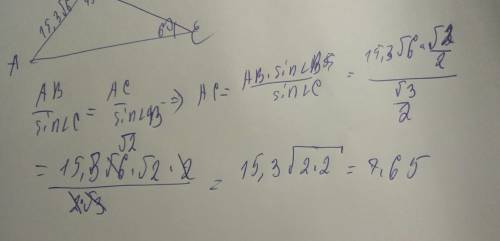 15,3√6 45
A 60 C
AB/sin∠C = AC/sin∠B => AC = AB·sin∠B/sin∠C = (15,3√6·√2/2)/(√3/2)
√2
= 15,3√6·√2·2/2·√3 = 15,3√2·2 = 7.65